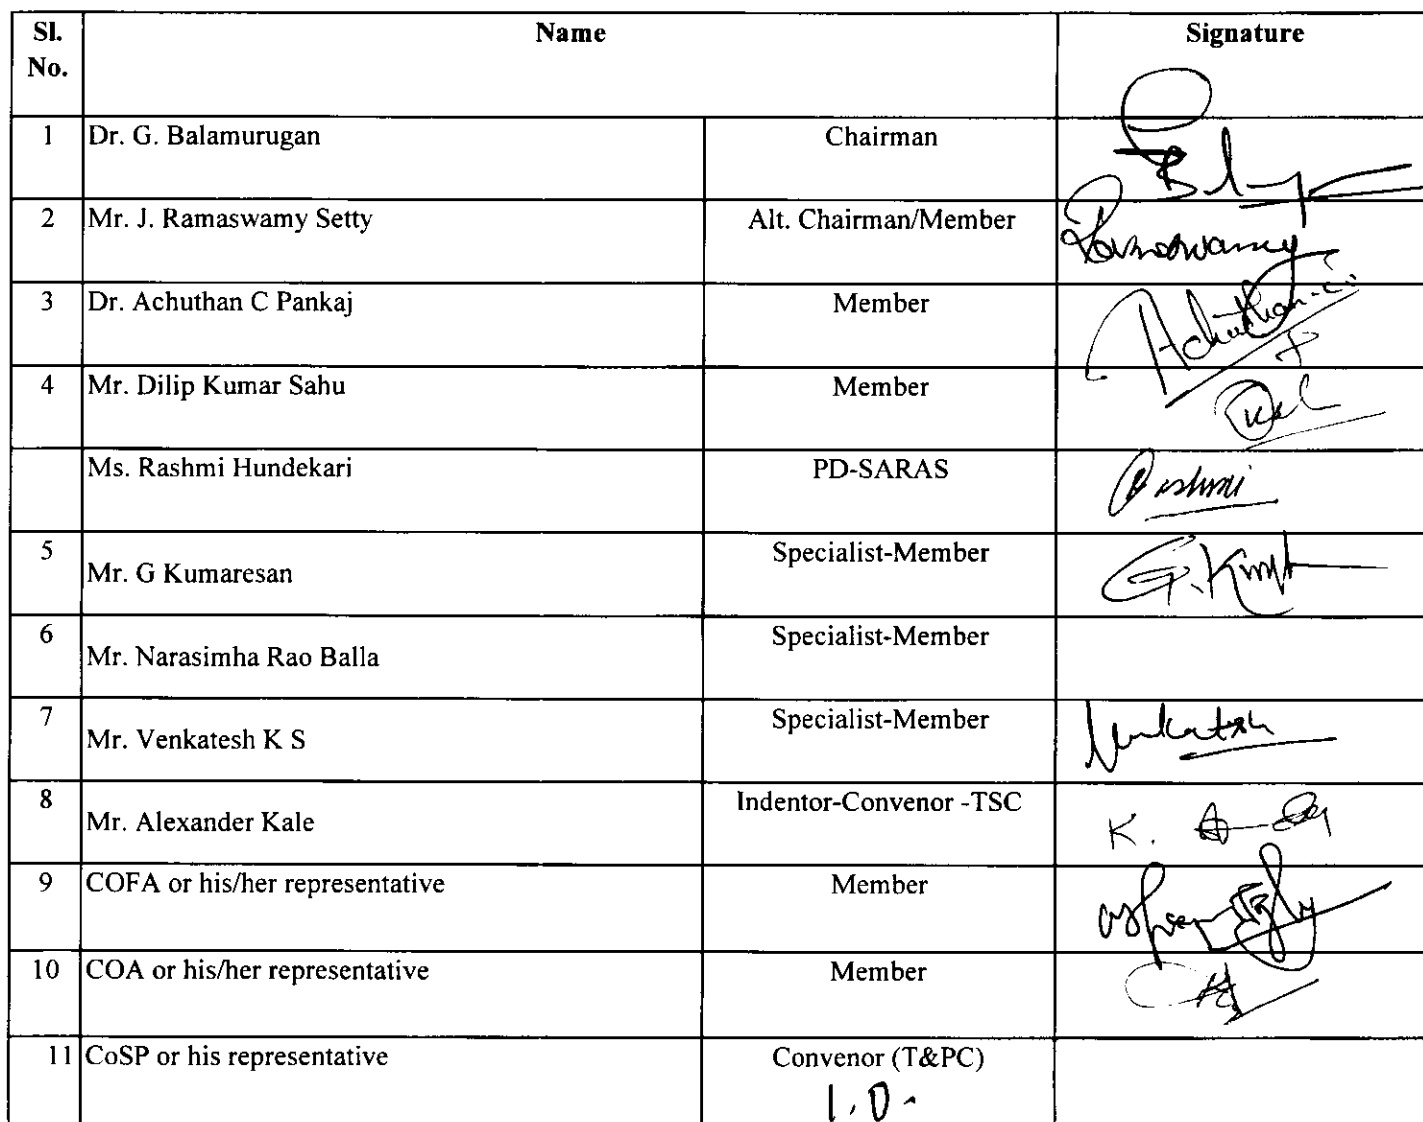 Sl. No. Name Signature
1 Dr. G. Balamurugan Chairman
2 Mr. J. Ramaswamy Setty Alt. Chairman/Member Ramaswamy
3 Dr. Achuthan C Pankaj Member Achuthan.C.
4 Mr. Dilip Kumar Sahu Member
Ms. Rashmi Hundekari PD-SARAS Rashmi
5 Mr. G Kumaresan Specialist-Member
6 Mr. Narasimha Rao Balla Specialist-Member
7 Mr. Venkatesh K S Specialist-Member Venkatesh
8 Mr. Alexander Kale Indentor-Convenor -TSC K.
9 COFA or his/her representative Member
10 COA or his/her representative Member
11 CoSP or his representative Convenor (T&PC)